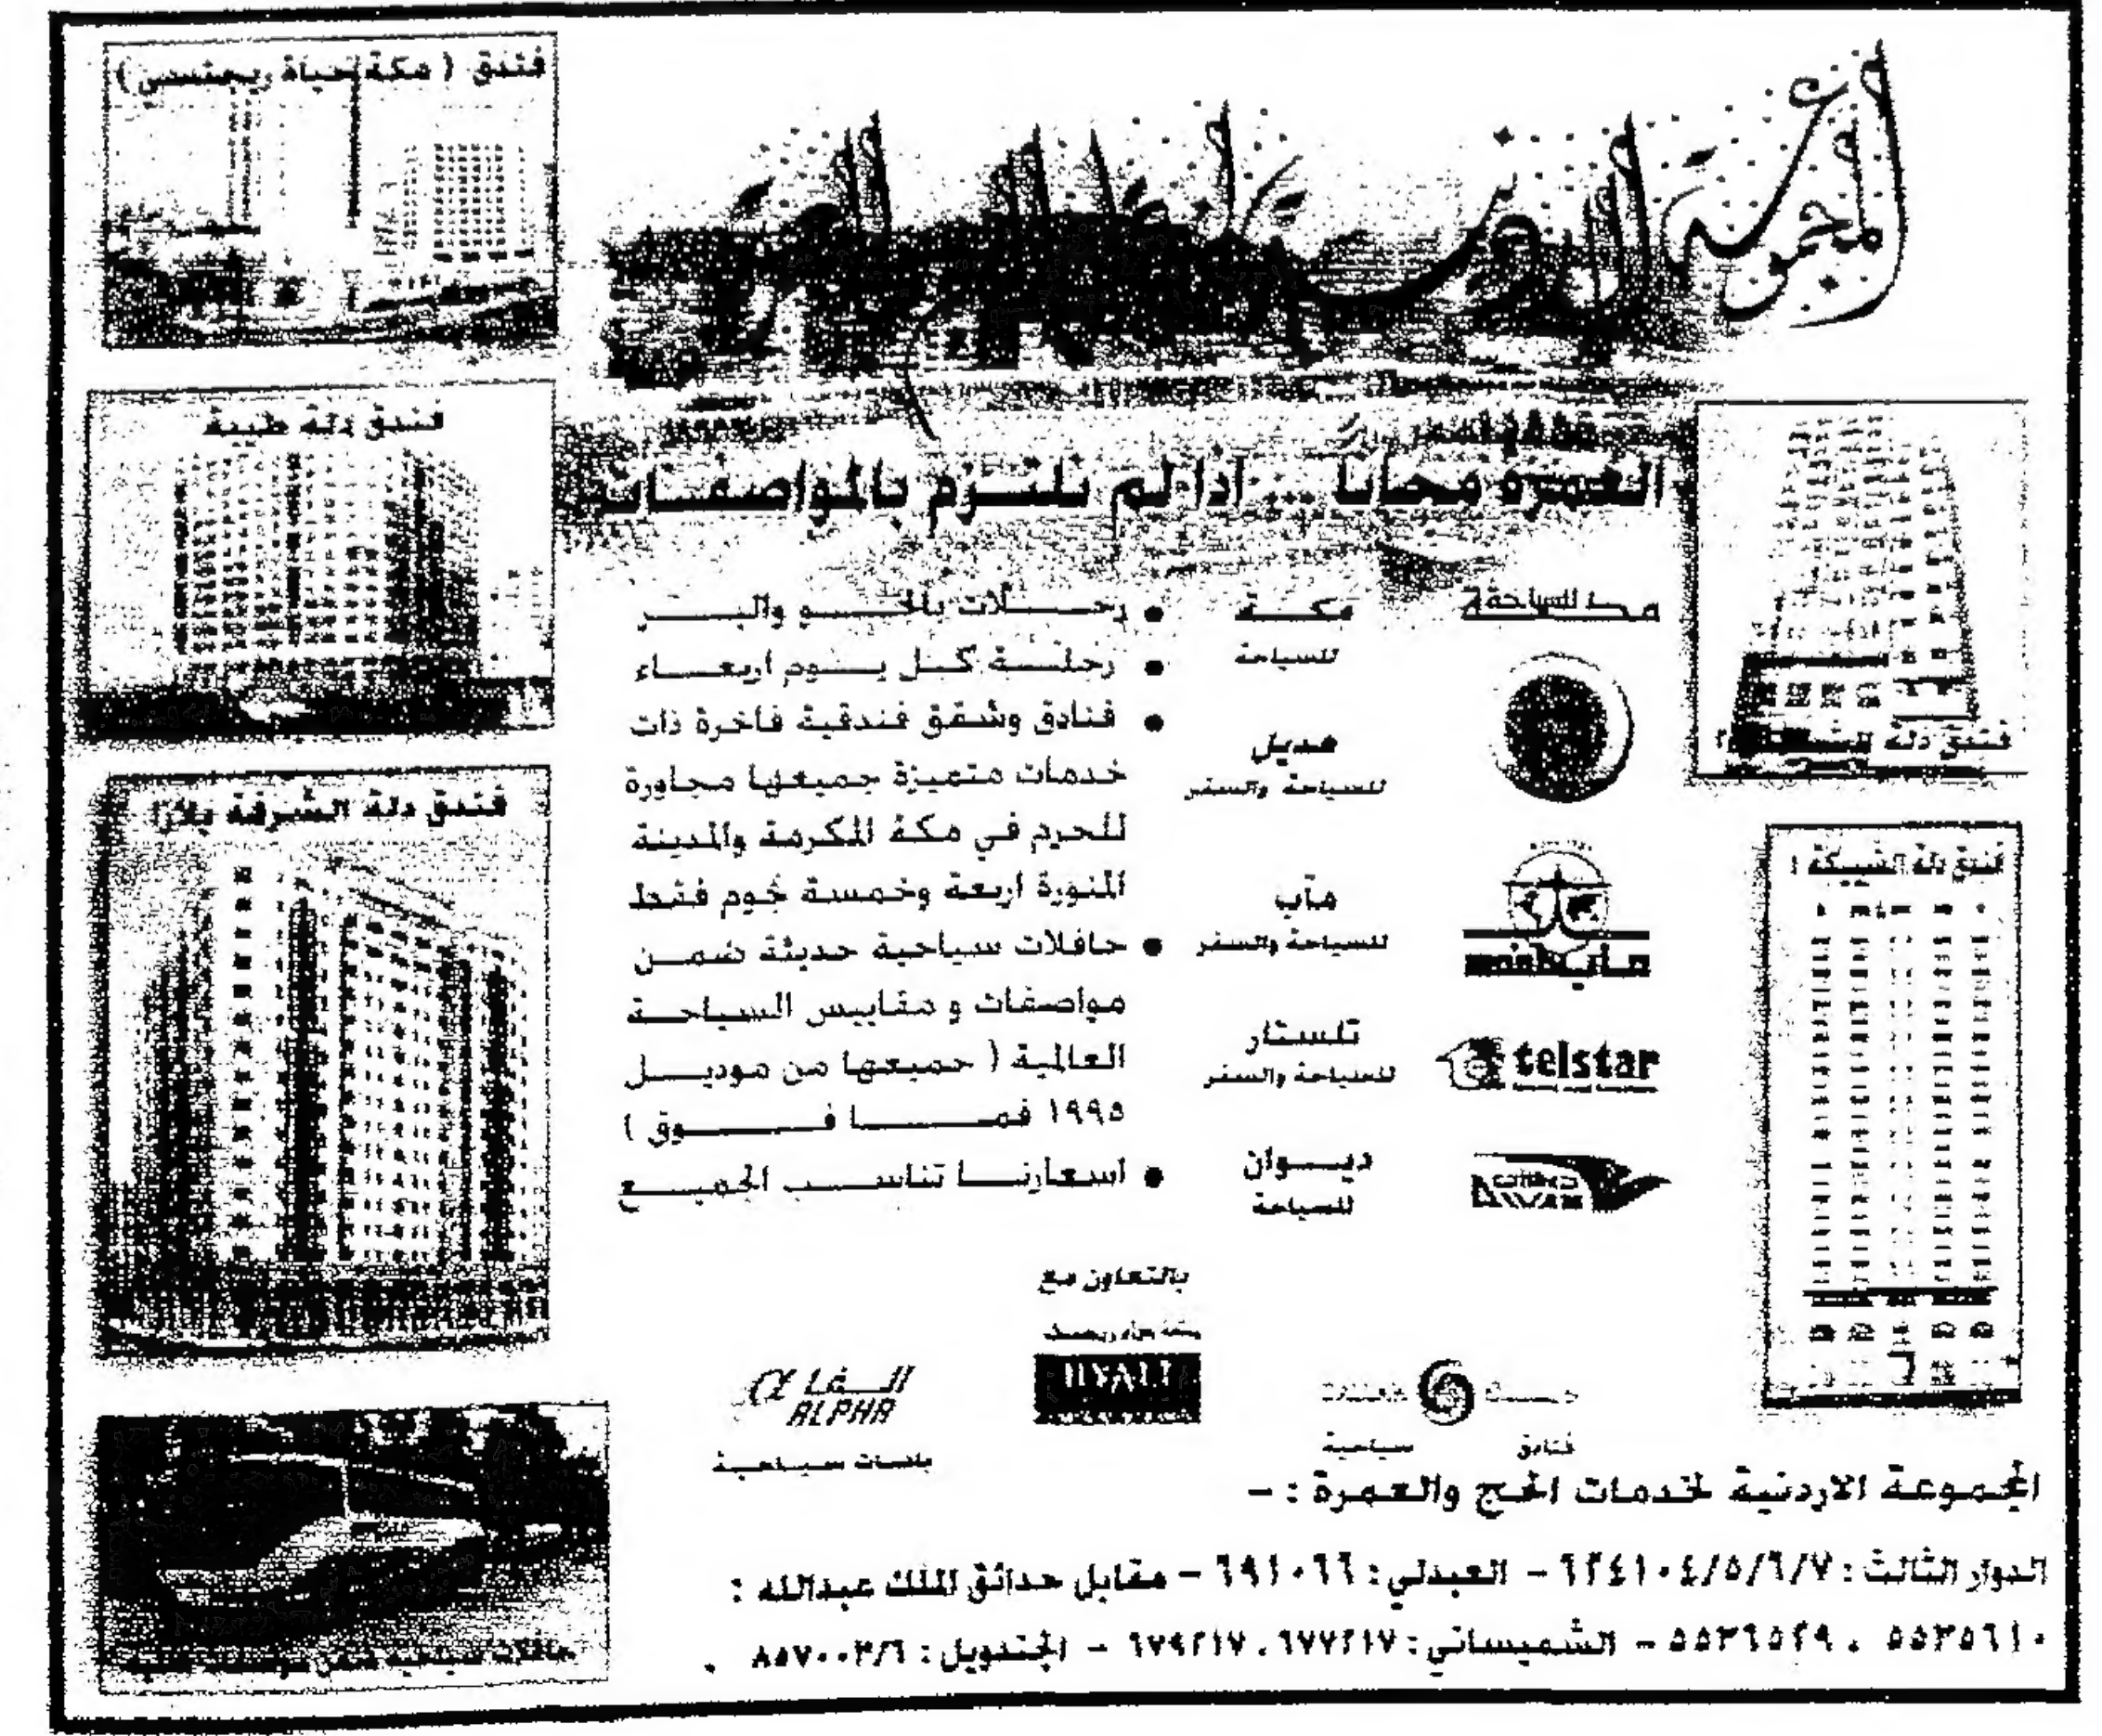 المجموعة الاردنية
العمرة مجاناً ... اذا لم نلتزم بالمواصفات
فندق ( مكة حياة ريجنسي )
فندق دلة طيبة
فندق دلة الشرفة بلازا
فندق دلة
فندق دلة الشبيكة ١
مكة
للسياحة
هديل
للسياحة والسفر
مآب
للسياحة والسفر
مآب
تلستار
للسياحة والسفر
telstar
ديوان
للسياحة
• رحلات بالجو والبر
• رحلة كل يوم اربعاء
• فنادق وشقق فندقية فاخرة ذات
خدمات متميزة جميعها مجاورة
للحرم في مكة المكرمة والمدينة
المنورة اربعة وخمسة نجوم فقط
• حافلات سياحية حديثة ضمن
مواصفات و مقاييس السياحة
العالمية ( جميعها من موديل
١٩٩٥ فما فوق )
• اسعارنا تناسب الجميع
بالتعاون مع
HYATT
الفا
ALPHA
باصات سياحية
فنادق سياحية
المجموعة الاردنية لخدمات الحج والعمرة : -
الدوار الثالث : ٦٢٤١٠٤/٥/٦/٧ - العبدلي : ٦٩١٠٦٦ - مقابل حدائق الملك عبدالله :
٥٥٣٥٦١٠ ، ٥٥٣٦٥٢٩ - الشميساني : ٦٧٧٢١٧ ، ٦٧٩٢١٧ - الجندويل : ٨٥٧٠٠٣/٦ .